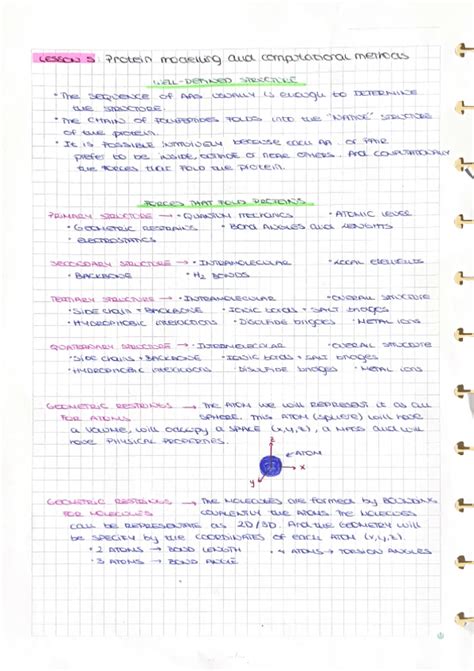 LESSON 5 Protein modelling and computational methods
WELL-DEFINED STRUCTURE
• The SEQUENCE OF AAS USUALLY IS enough to DETERMINE
the STRUCTURE.
• The CHAIN OF POLYPEPTIDES FOLDS INTO the "NATIVE" STRUCTURE
of the protein.
• It is POSSIBLE because each AA. OR PAIR
prefer to be INSIDE, outside or near others. And COMPUTATIONALLY
the FORCES that FOLD the protein.
FORCES THAT FOLD PROTEINS
PRIMARY STRUCTURE → • QUANTUM MECHANICS • ATOMIC LEVEL
• GEOMETRIC RESTRAINS • BOND ANGLES and LENGHTS
• ELECTROSTATICS
SECONDARY STRUCTURE → • INTRAMOLECULAR • LOCAL ELEMENTS
• BACKBONE • H2 BONDS
TERTIARY STRUCTURE → • INTRAMOLECULAR • OVERALL STRUCTURE
• SIDE CHAIN + BACKBONE • IONIC BONDS + SALT bridges
• HYDROPHOBIC INTERACTIONS • DISULFIDE bridges • METAL IONS
QUATERNARY STRUCTURE → • INTERMOLECULAR • OVERALL STRUCTURE
• SIDE CHAINS + BACKBONE • IONIC BONDS + SALT bridges
• HYDROPHOBIC INTERACTIONS • DISULFIDE bridges • METAL IONS
GEOMETRIC RESTRINGS → The ATOM WE WILL REPRESENT it as all
FOR ATOMS SPHERE. This ATOM (sphere) will have
a VOLUME, will occupy a SPACE (x,y,z), a MASS and will
have PHYSICAL PROPERTIES.
z
ATOM
x
y
GEOMETRIC RESTRINGS → The MOLECULES are formed by BOUNDING
FOR MOLECULES COVALENTLY the ATOMS. The MOLECULES
can be REPRESENTATE as 2D/3D. And the GEOMETRY will
be SPECIFY by the COORDINATES of each ATOM (x,y,z).
• 2 ATOMS → BOND LENGTH • 4 ATOMS → TORSION ANGLES
• 3 ATOMS → BOND ANGLE